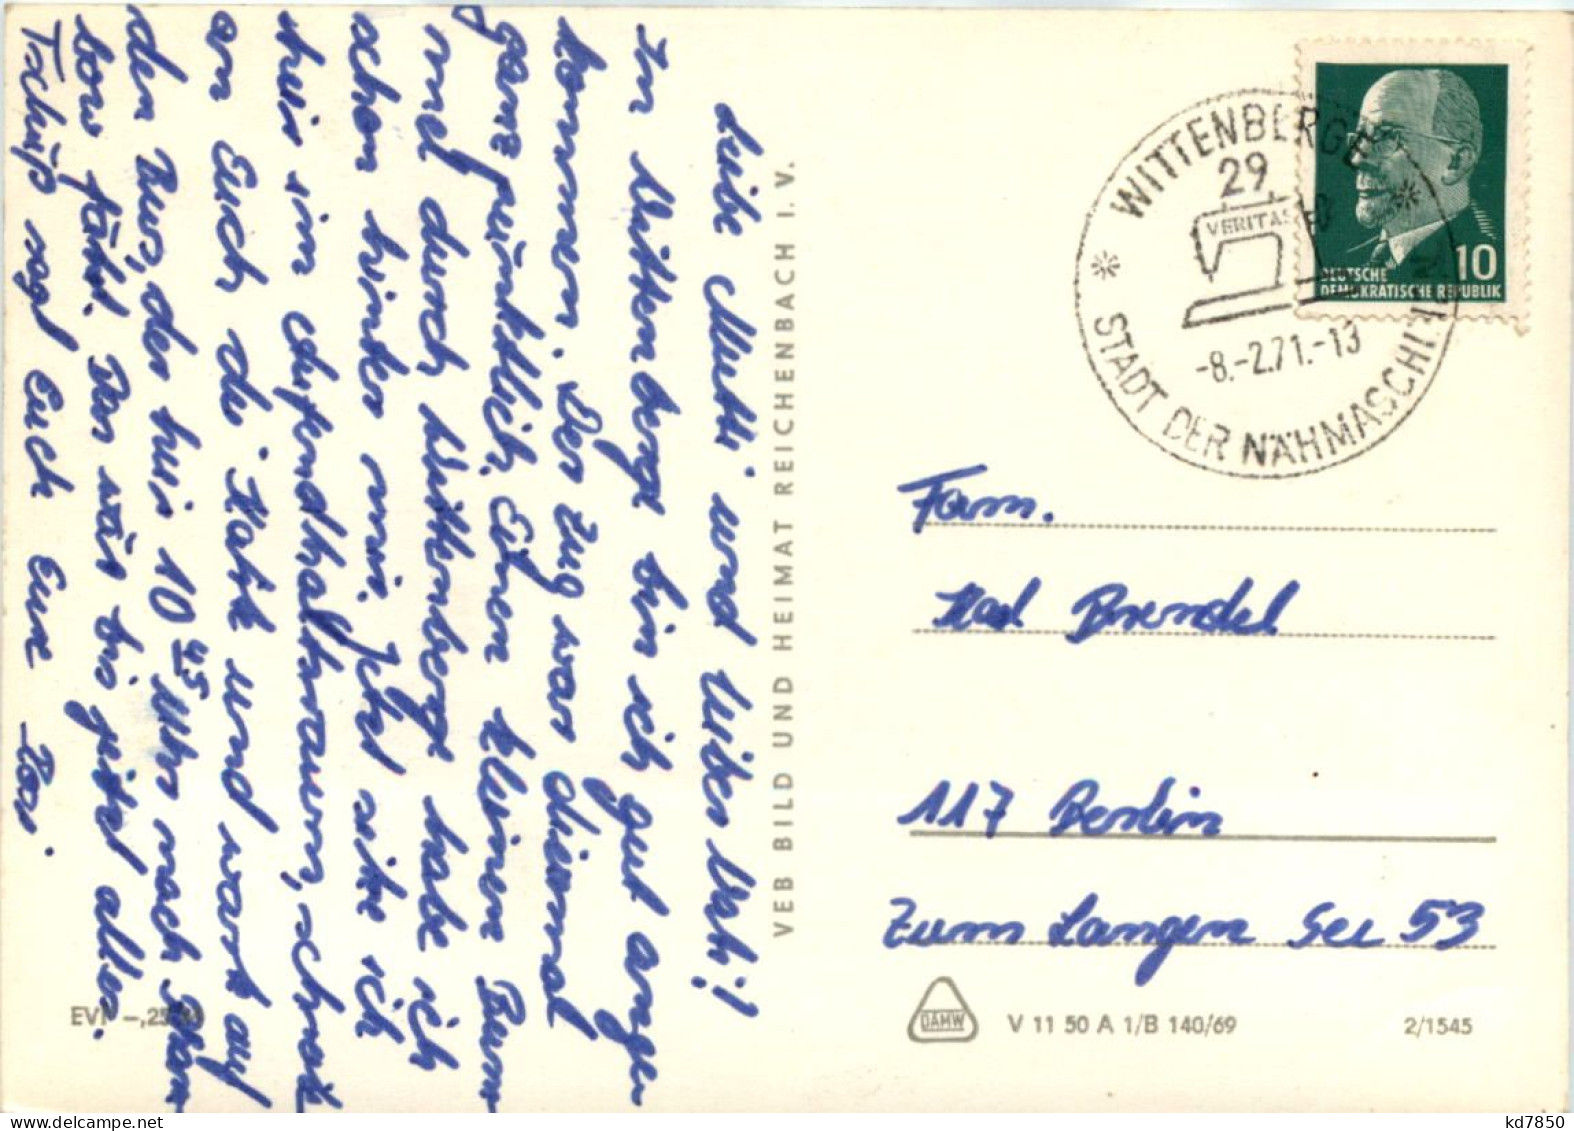 Liebe Mutti und lieber Vati!
In Wittenberge bin ich gut ange-
kommen. Der Zug war diesmal
ganz pünktlich. Einen kleinen Bum-
mel durch Wittenberge habe ich
schon hinter mir. Jetzt sitze ich
hier im Aufenthaltsraum, schreib
an Euch die Karte und wart auf
den Bus, der hier 10⁴⁵ Uhr nach
bow fährt. Das wär bis jetzt alles.
Tschüß sagt Euch Eure
VEB BILD UND HEIMAT REICHENBACH I. V.
EVP -,25
WITTENBERGE
29
VERITAS
-8.-2.71.-13
STADT DER NÄHMASCHI
10
DEUTSCHE
DEMOKRATISCHE REPUBLIK
Fam.
Karl Brendel
117 Berlin
Zum Langen See 53
DAMW
V 11 50 A 1/B 140/69
2/1545
kd7850